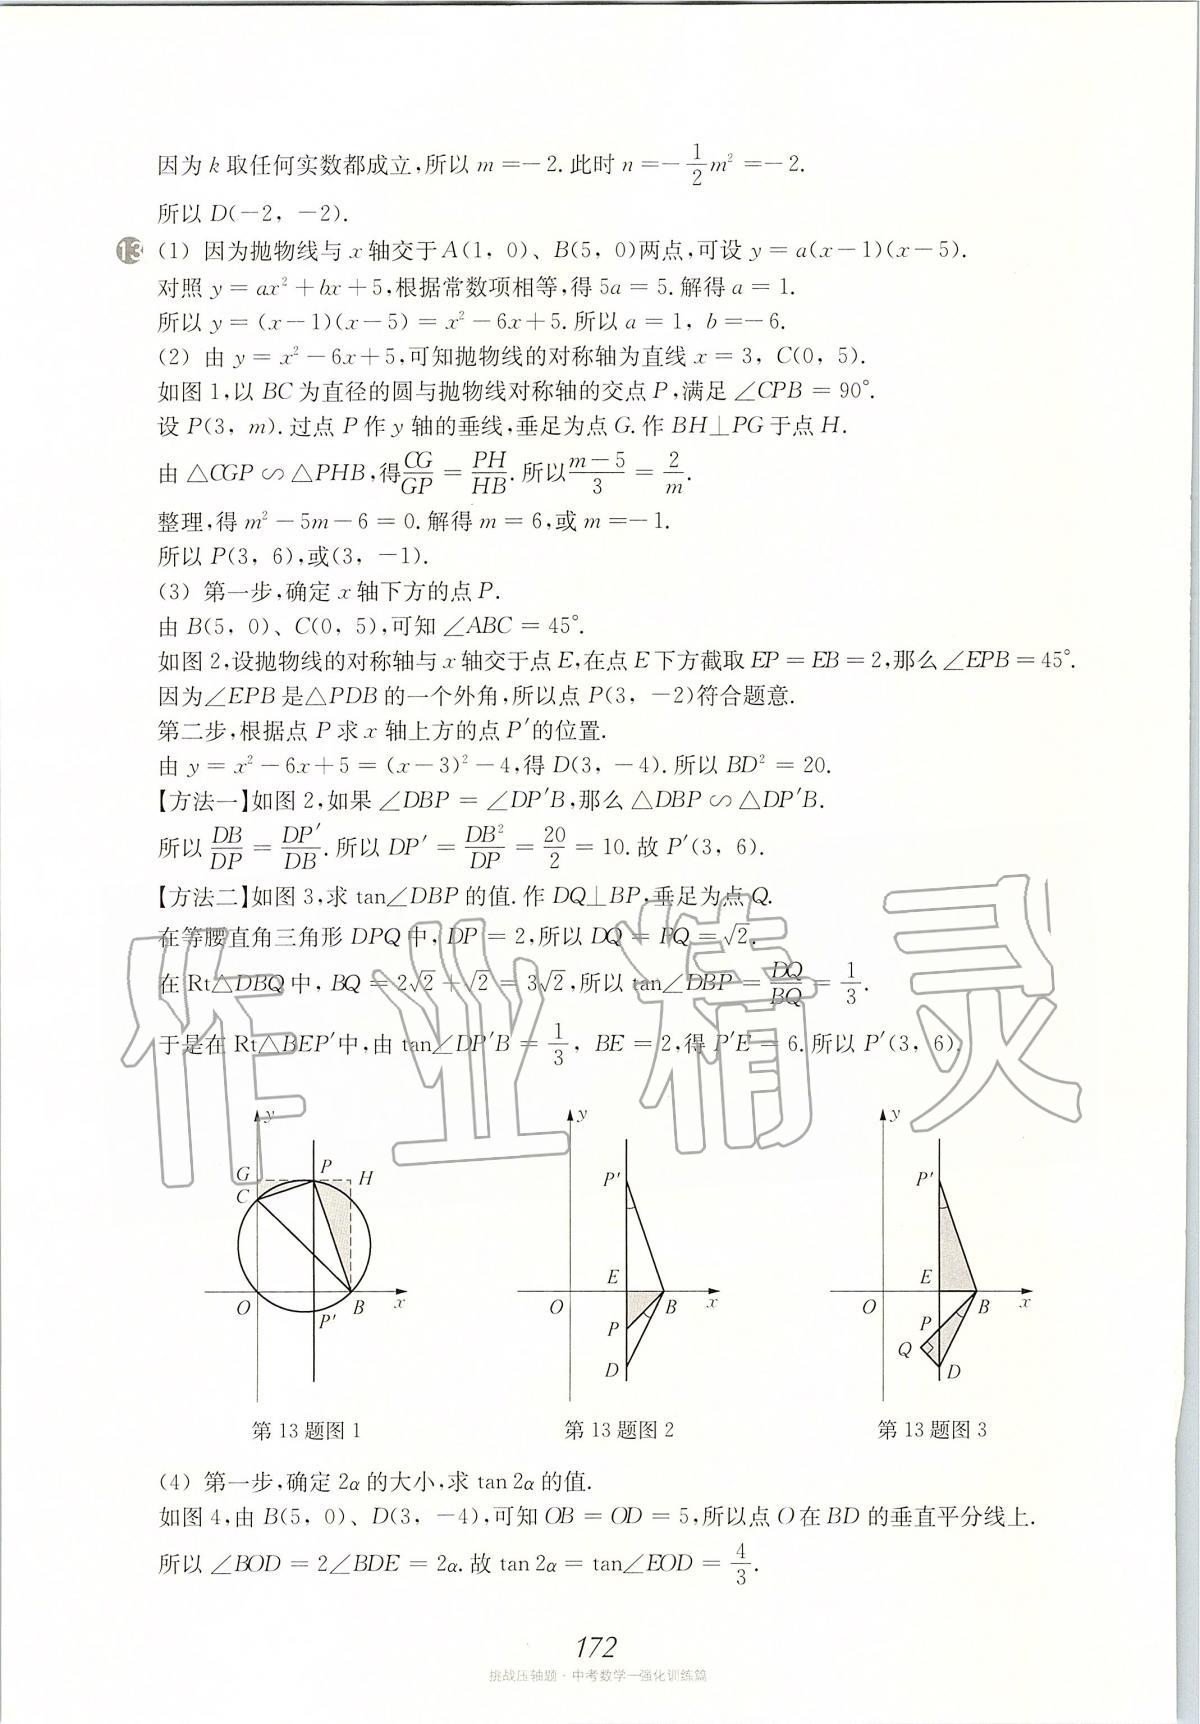 因为 k 取任何实数都成立,所以 m =-2. 此时 n =-\frac{1}{2}m² =-2.
所以 D(-2, -2).
13 (1) 因为抛物线与 x 轴交于 A(1, 0)、B(5, 0)两点,可设 y = a(x-1)(x-5).
对照 y = ax² + bx + 5,根据常数项相等,得 5a = 5. 解得 a = 1.
所以 y = (x-1)(x-5) = x² - 6x + 5. 所以 a = 1, b =-6.
(2) 由 y = x² - 6x + 5,可知抛物线的对称轴为直线 x = 3, C(0, 5).
如图 1,以 BC 为直径的圆与抛物线对称轴的交点 P,满足 ∠CPB = 90°.
设 P(3, m). 过点 P 作 y 轴的垂线,垂足为点 G. 作 BH⊥PG 于点 H.
由 △CGP ∽ △PHB,得\frac{CG}{GP} = \frac{PH}{HB}. 所以\frac{m-5}{3} = \frac{2}{m}.
整理,得 m² - 5m - 6 = 0. 解得 m = 6,或 m =-1.
所以 P(3, 6),或(3, -1).
(3) 第一步,确定 x 轴下方的点 P.
由 B(5, 0)、C(0, 5),可知 ∠ABC = 45°.
如图 2,设抛物线的对称轴与 x 轴交于点 E,在点 E 下方截取 EP = EB = 2,那么 ∠EPB = 45°.
因为∠EPB 是△PDB 的一个外角,所以点 P(3, -2)符合题意.
第二步,根据点 P 求 x 轴上方的点 P′的位置.
由 y = x² - 6x + 5 = (x-3)² - 4,得 D(3, -4). 所以 BD² = 20.
【方法一】如图 2,如果 ∠DBP = ∠DP′B,那么 △DBP ∽ △DP′B.
所以 \frac{DB}{DP} = \frac{DP′}{DB}. 所以 DP′ = \frac{DB²}{DP} = \frac{20}{2} = 10. 故 P′(3, 6).
【方法二】如图 3,求 tan∠DBP 的值. 作 DQ⊥BP,垂足为点 Q.
在等腰直角三角形 DPQ 中, DP = 2,所以 DQ = PQ = √2.
在 Rt△DBQ 中, BQ = 2√2 + √2 = 3√2,所以 tan∠DBP = \frac{DQ}{BQ} = \frac{1}{3}.
于是在 Rt△BEP′中,由 tan∠DP′B = \frac{1}{3}, BE = 2,得 P′E = 6. 所以 P′(3, 6).
作业精灵
y
G P H
C
O B x
P′
第 13 题图 1
y
P′
E
O B x
P
D
第 13 题图 2
y
P′
E
O B x
P
Q D
第 13 题图 3
(4) 第一步,确定 2α 的大小,求 tan 2α 的值.
如图 4,由 B(5, 0)、D(3, -4),可知 OB = OD = 5,所以点 O 在 BD 的垂直平分线上.
所以 ∠BOD = 2∠BDE = 2α. 故 tan 2α = tan∠EOD = \frac{4}{3}.
172
挑战压轴题·中考数学—强化训练篇